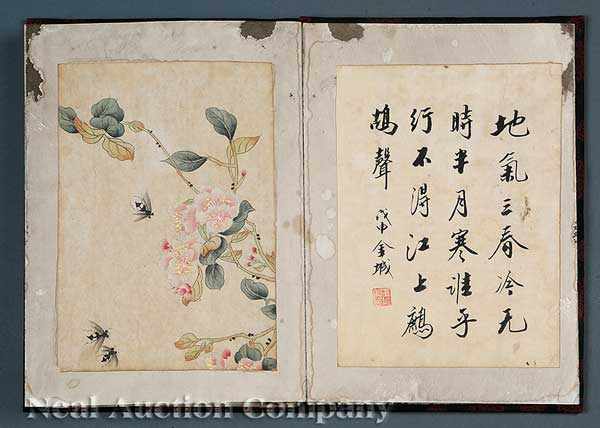 地氣三春冷天
時半月寒誰乎
行不得江上鷓
鴣聲
戊申金城
Neal Auction Company